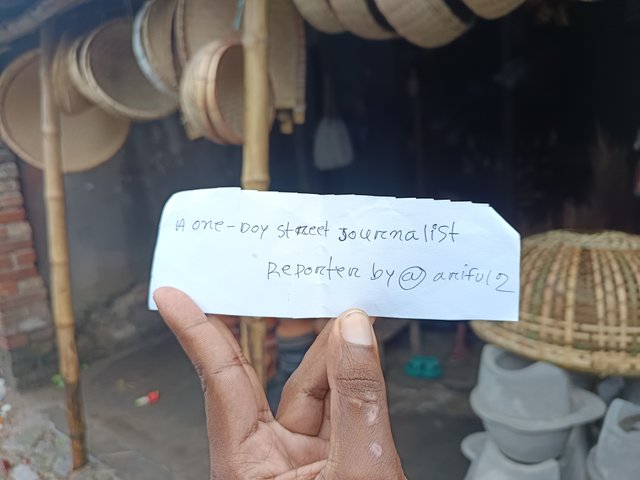 A one-Day street Journalist
Reporter by @ ariful2